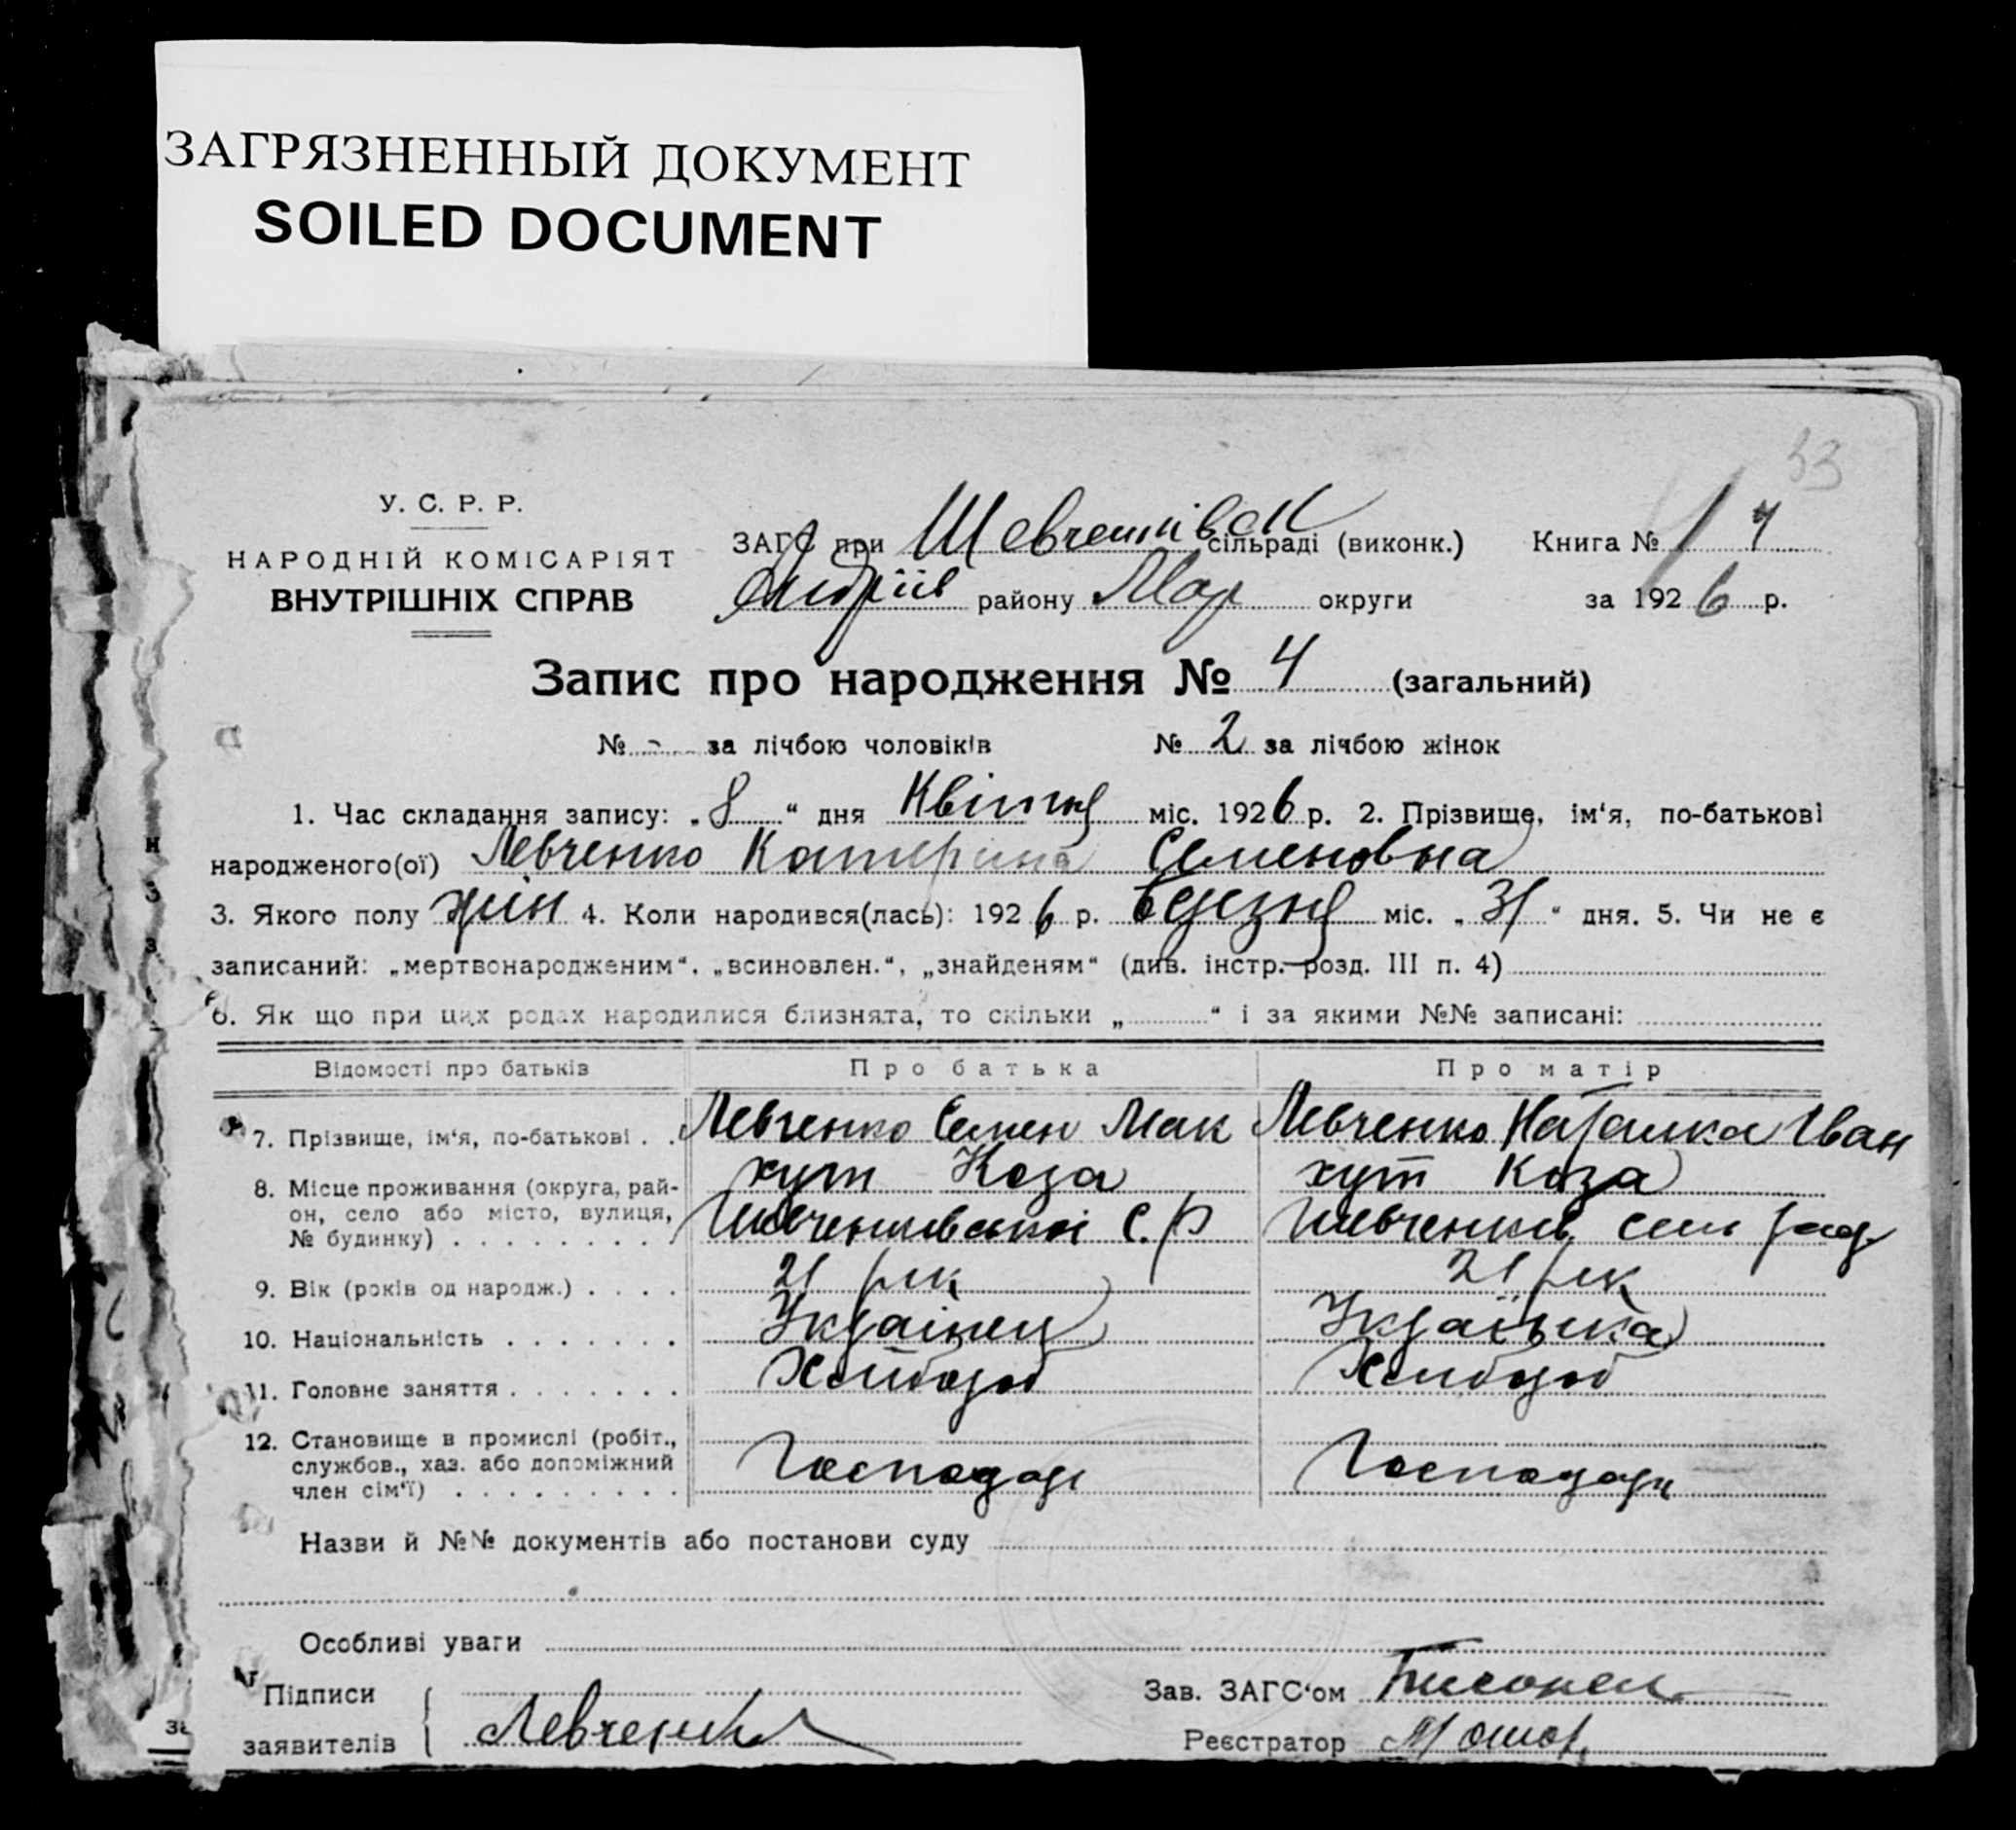 ЗАГРЯЗНЕННЫЙ ДОКУМЕНТ
SOILED DOCUMENT
33
У. С. Р. Р.
НАРОДНІЙ КОМІСАРІЯТ
ВНУТРІШНІХ СПРАВ
ЗАГС при Шевченківск сільраді (виконк.) Книга № 4
Андріїв району Мар округи за 1926 р.
Запис про народження № 4 (загальний)
№ - за лічбою чоловіків № 2 за лічбою жінок
1. Час складання запису: „8“ дня Квітня міс. 1926 р. 2. Прізвище, ім‘я, по-батькові
народженого(ої) Левченко Катерина Семеновна
3. Якого полу жін 4. Коли народився(лась): 1926 р. березня міс. „31“ дня. 5. Чи не є
записаний: „мертвонародженим“, „всиновлен.“, „знайденям“ (див. інстр. розд. III п. 4)
6. Як що при цих родах народилися близнята, то скільки „ “ і за якими №№ записані:
Відомості про батьків Про батька Про матір
7. Прізвище, ім‘я, по-батькові . . Левченко Семен Мак Левченко Наталка Іван
8. Місце проживання (округа, рай- хут Коза хут Коза
он, село або місто, вулиця, Шевченківської С.Р Шевченків. сель рад.
№ будинку) . . . . . . . .
9. Вік (років од народж.) . . . . 21 рік 21 рік
10. Національність . . . . . . . Українец Українка
11. Головне заняття . . . . . . . Хлібороб Хлібороб
12. Становище в промислі (робіт.,
службов., хаз. або допоміжний Господар Господар
член сім‘ї) . . . . . . . . .
Назви й №№ документів або постанови суду
Особливі уваги
Підписи Зав. ЗАГС‘ом
заявителів Левченко Реєстратор